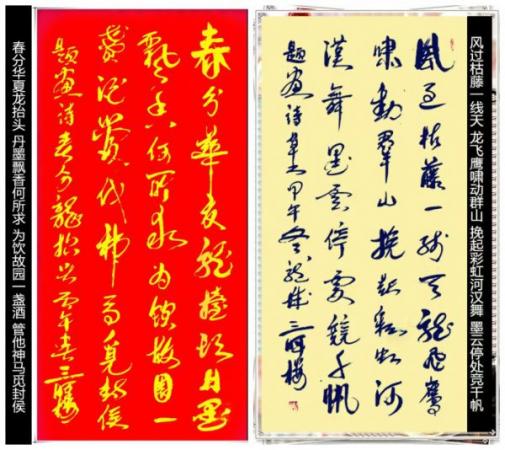 春分华夏龙抬头 丹墨飘香何所求 为饮故园一盏酒 管他神马觅封侯
春分華夏龍擡頭丹墨
飄香何所求為飲故園一
盞酒管他神馬覓封侯
題畫詩春分龍抬頭
風過枯藤一線天龍飛鷹
嘯動羣山挽起彩虹河
漢舞墨雲停處競千帆
題畫詩 甲午冬龍城三
风过枯藤一线天 龙飞鹰啸动群山 挽起彩虹河汉舞 墨云停处竞千帆